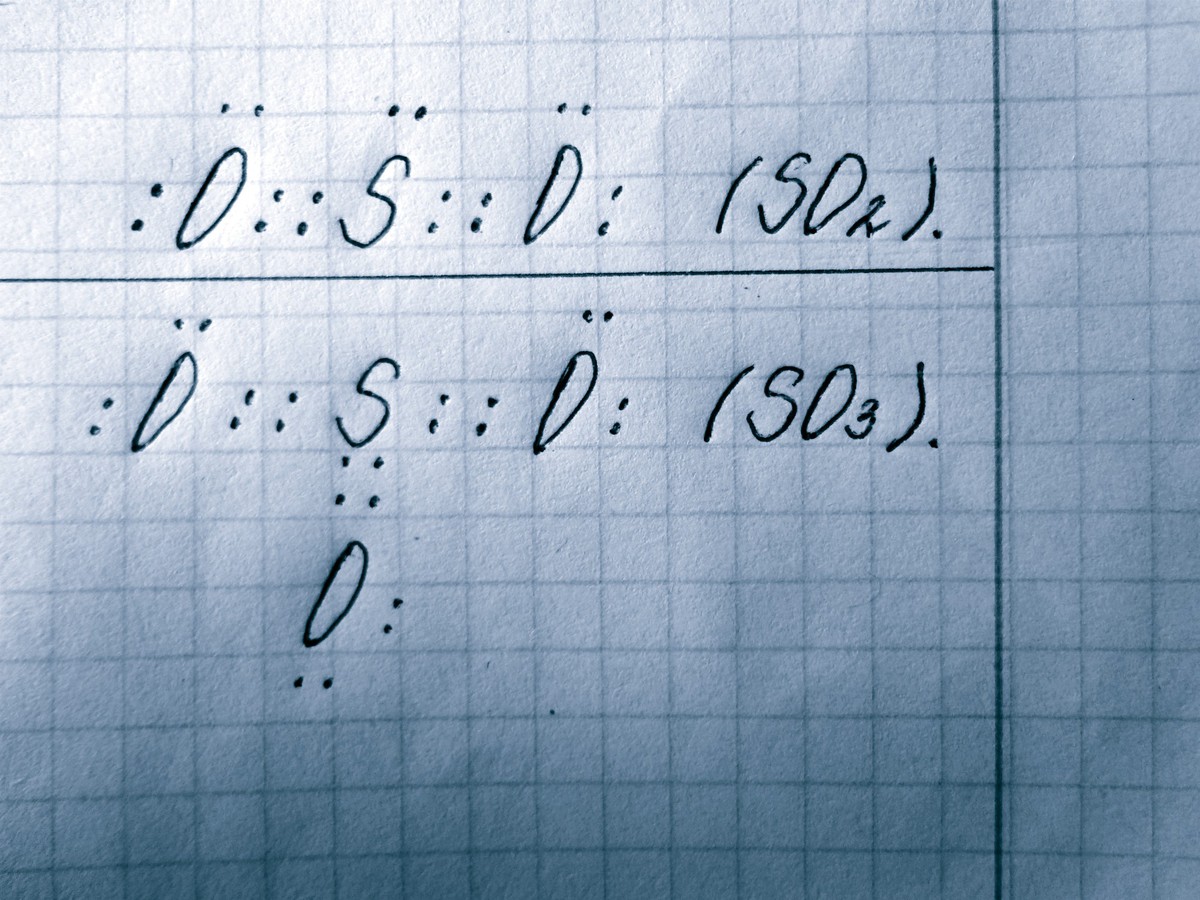 :Ö::S̈::Ö: (SO₂).
:Ö::S::Ö: (SO₃).
::
O:
..